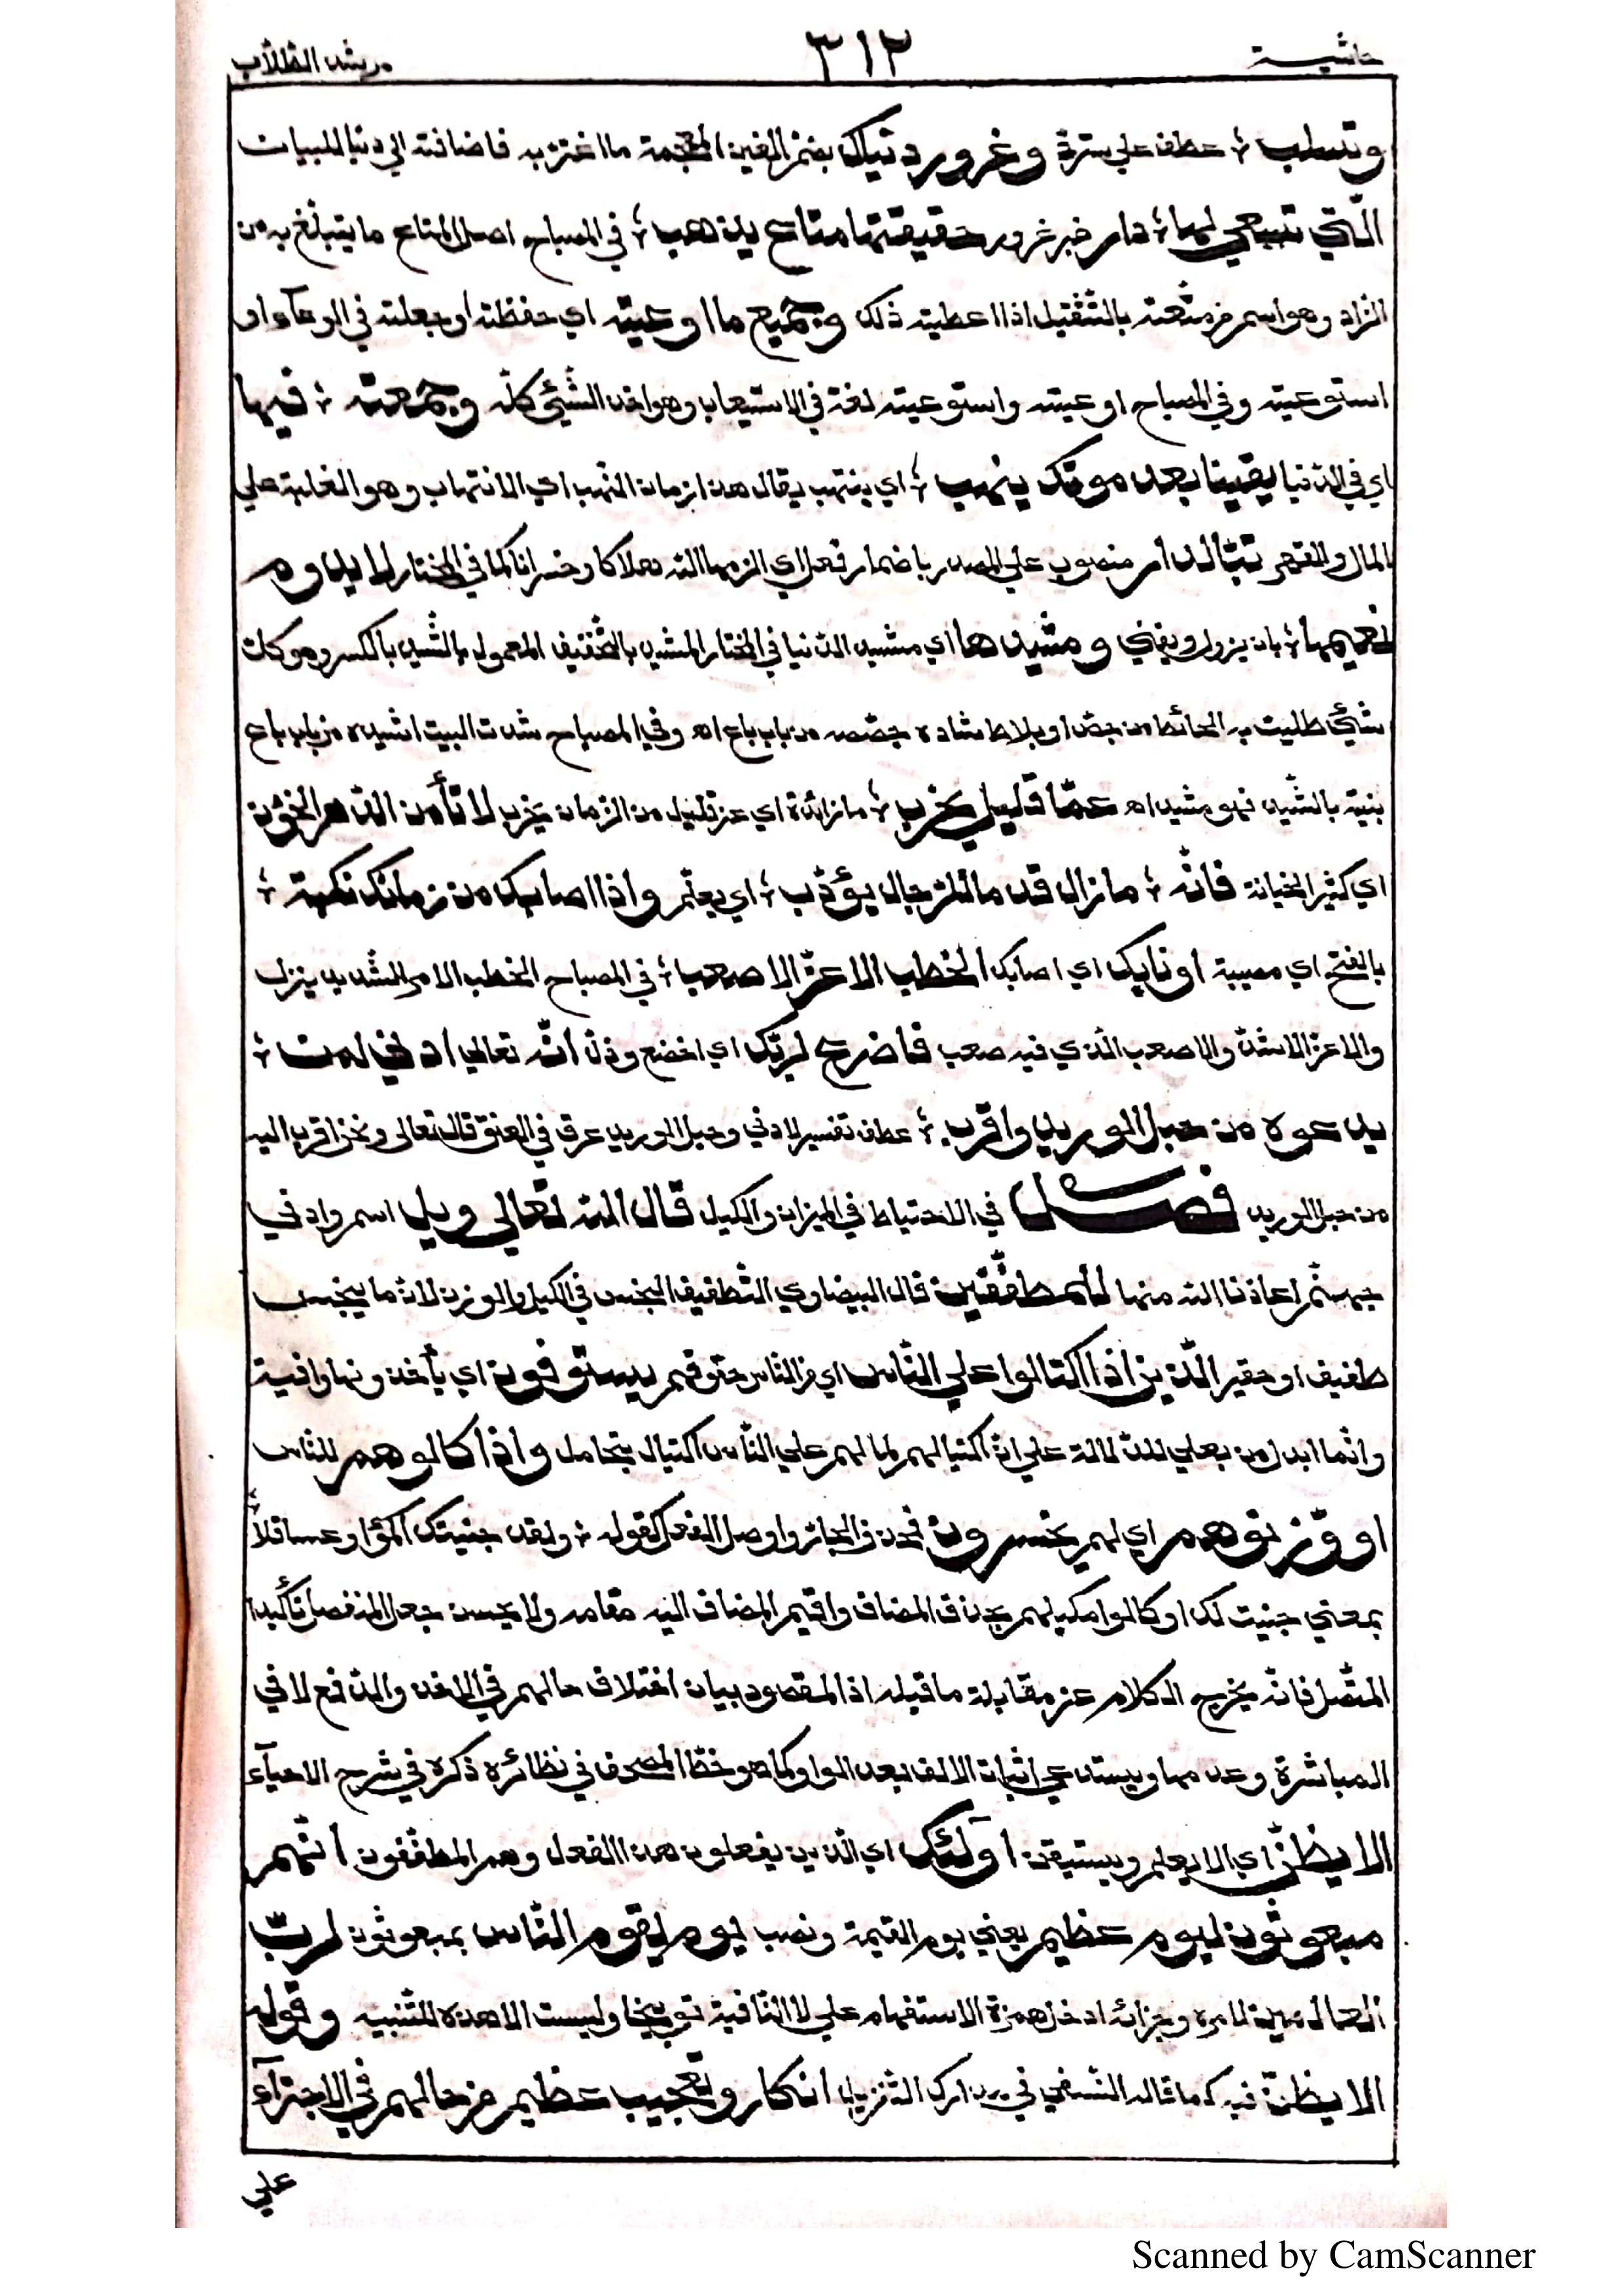 حاشية ٣١٢ مرشد الطلاب
وتسلب ؛ عطف على يسترد وغرور دنياك بضم الغين المعجمة ما اغتر به فاضافته الي دنيا للبيان
الّتي تسعي لها ؛ دار خبر غرور حقيقتها متاع يذهب ؛ في المصباح اصل المتاع ما يتبلّغ به من
الزاد وهو اسم من متّعته بالتّثقيل اذا اعطيته ذلك وجميع ما اوعيته اي حفظته او جعلته في الوعآء او
استوعيته وفي المصباح اوعيته واستوعيته لغة في الاستيعاب وهو اخذ الشّيئ كلّه وجمعته ؛ فيها
اي في الدّنيا يقينا بعد موتك ينهب ؛ اي ينتهب يقال هذا زمان النّهب اي الانتهاب وهو الغلبة علي
المال والقهر تبّا لدار منصوب علي المصدر باضمار فعل اي الزمها الله هلاكا وخسرانا كما في المختار لا يدوم
نعيمها ؛ بان يزول ويفني ومشيدها اي مشيد الدّنيا في المختار المشيد بالتّخفيف المعمول بالشّيد بالكسر وهو كل
شيئ طليت به الحائط من جصّ او بلاط شاده جصّصه من باب باع اه وفي المصباح شدت البيت اشيده من باب باع
بنيته بالشّيد فهو مشيد اه عمّا قليل يخرب ؛ ما زائدة اي عن قليل من الزمان يخرب لا تأمن الدّهر الخؤن
اي كثير الخيانة فانّه ؛ ما زال قدما للرّجال يؤدّب ؛ اي يعلّم واذا اصابك من زمانك نكبة ؛
بالفتح اي مصيبة او نابك اي اصابك الخطب الاعزّ الاصعب ؛ في المصباح الخطب الامر الشّديد ينزل
والاعزّ الاشدّ والاصعب الّذي فيه صعب فاضرع لربّك اي اخضع وذلّ انّه تعالي ادني لمن ؛
يدعوه من حبل الوريد واقرب ؛ عطف تفسير لادني وحبل الوريد عرق في العنق قال تعالى ونحن اقرب اليه
من حبل الوريد فصل في الاحتياط في الميزان والكيل قال الله تعالي ويل اسم واد في
جهنّم اعاذنا الله منها للمطفّفين قال البيضاوي التّطفيف البخس في الكيل والوزن لانّ ما يبخس
طفيف او حقير الّذين اذا اكتالوا علي النّاس اي من الناس حقوقهم يستوفون اي يأخذونها وافية
وانّما ابدل من بعلي للدّلالة علي انّ اكتيالهم لما لهم علي النّاس اكتيال يتحامل واذا كالوهم للنّاس
او وّزنوهم اي لهم يخسرون فحذف الجار واوصل الفعل كقوله ؛ ولقد جنيتك اكمؤا وعساقلاً
بمعني جنيت لك او كالوا مكيلهم بحذف المضاف واقيم المضاف اليه مقامه ولا يحسن جعل المنفصل تأكيدا
المتّصل فانّه يخرج الكلام عن مقابلة ما قبله اذ المقصود بيان اختلاف حالهم في الاخذ والدّفع لا في
المباشرة وعدمها ويستدعي اثبات الالف بعد الواو كما هو خطّ المصحف في نظائره ذكره في شرح الاحيآء
الا يظنّ اي الا يعلم ويستيقن اولئك اي الّذين يفعلون هذا الفعل وهم المطفّفون انّهم
مبعوثون ليوم عظيم يعني يوم القيمة ونصب يوم يقوم النّاس بمبعوثون لربّ
العالمين لامره وجزائه ادخل همزة الاستفهام علي لا النّافية توبيخا وليست الا هذه للتّنبيه وقوله
الا يظنّ فيه كما قاله النّسفي في مدارك التّنزيل انكار وتعجيب عظيم من حالهم في الاجترآء
علي
Scanned by CamScanner